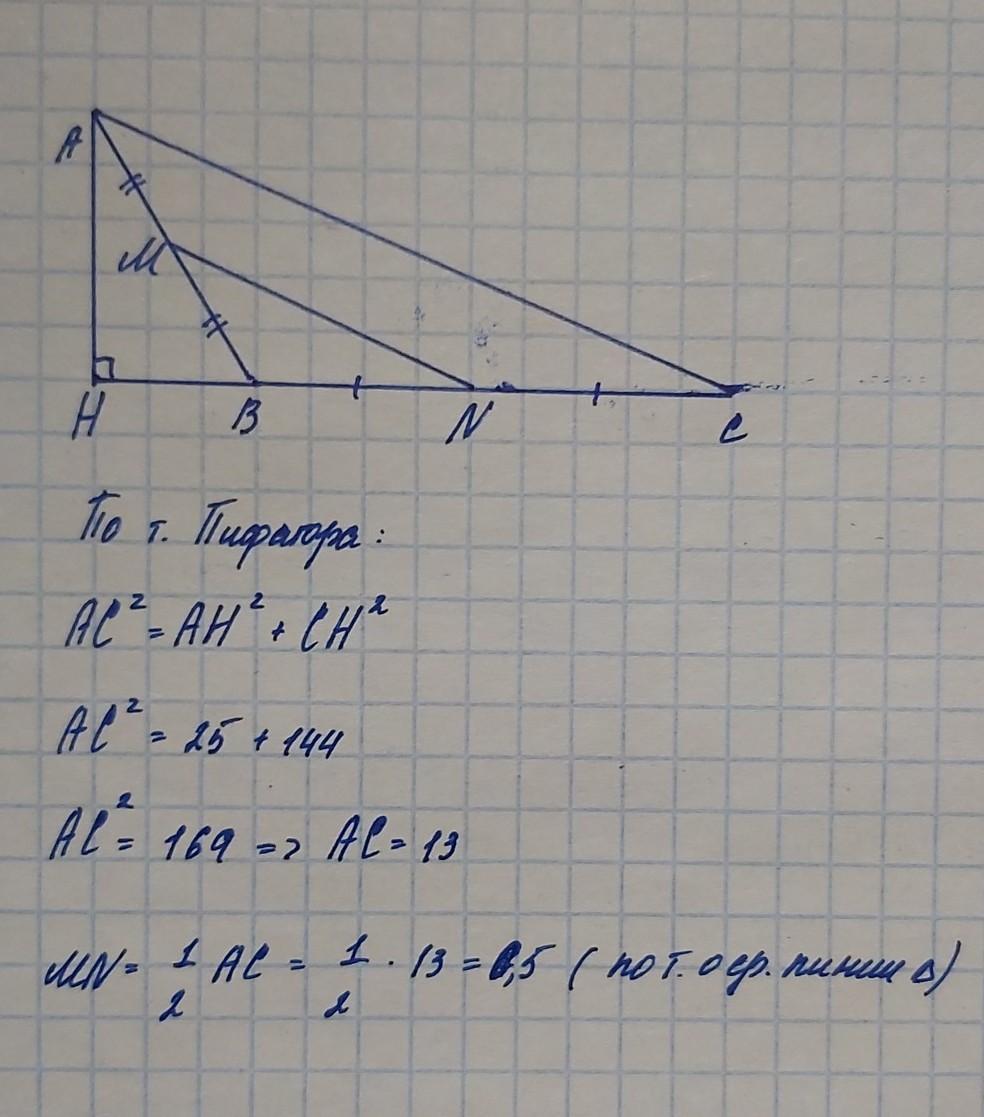 A
M
H B N C
По т. Пифагора:
AC² = AH² + CH²
AC² = 25 + 144
AC² = 169 => AC = 13
MN = 1/2 AC = 1/2 · 13 = 6,5 ( по т. о ср. линии Δ)